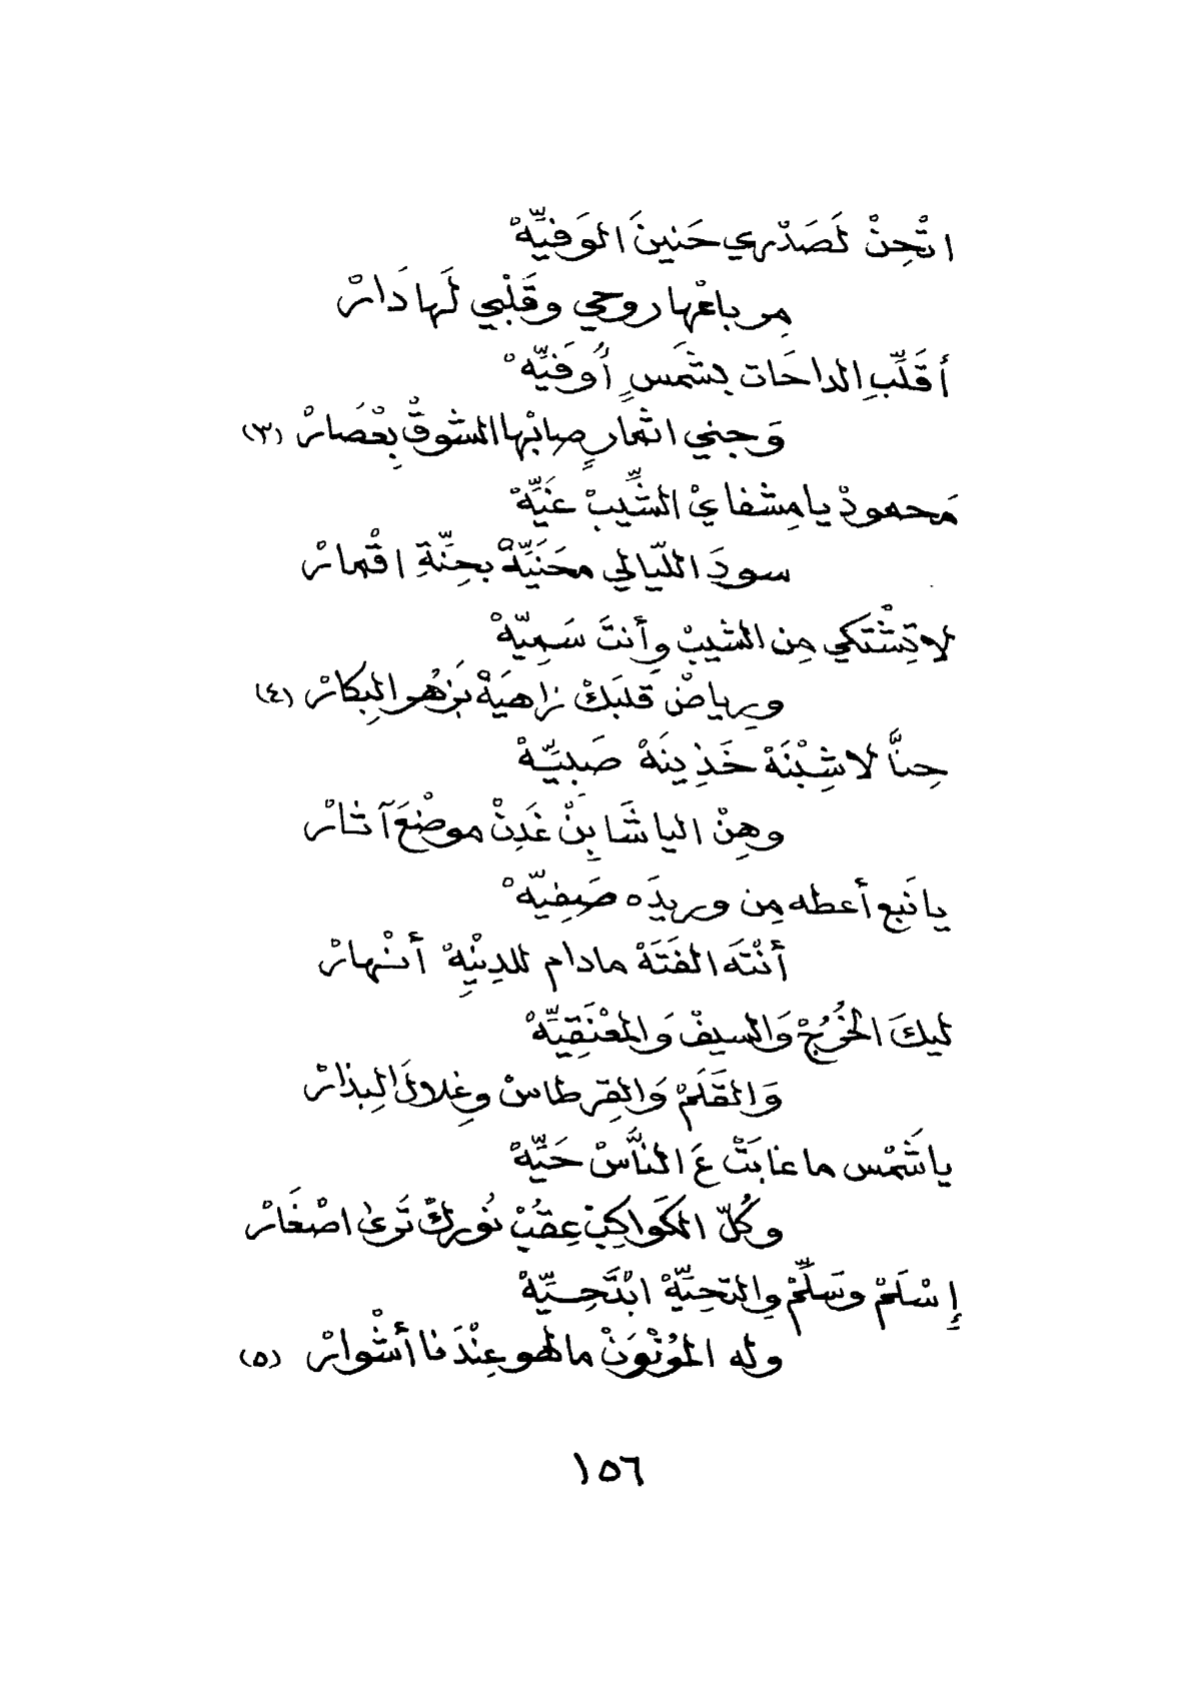 اتْحِنْ لَصَدْري حَنينَ الوَفيِّهْ
مِرباعْها روحي وقَلْبي لَها دَارْ
أقَلِّبِ الداحَات بشَمسٍ أُوفَيِّهْ
وَجني اثمارٍ صابْها الشوقْ بِعْصَارْ (٣)
مَحمودْ يا مِشفايْ الشِّيبْ غَيِّهْ
سودَ اللّيالي محَنِيِّهْ بحِنِّةِ اقْمارْ
لا تِشْتَكي مِن الشيبْ وِأنتَ سَمِيّهْ
ورِياضْ قلبَكْ زاهيَهْ بَزهُو البِكارْ (٤)
حِنَّا لا شِبْنَهْ خَذِينَهْ صَبِيّهْ
وهِنْ اليا شَابِنْ غَدِنْ موضْعَ آثارْ
يا نَبع أعطه مِن وريدَه صَفِيّهْ
أنْتَه الفَتَهْ مادام للدِنْيِهْ أنْهارْ
ليكَ الخُرُجْ وَالسيفْ وَالمعْنَقِيِّهْ
وَالقَلَمْ وَالقِرطاسْ وغِلالَ البِذارْ
يا شَمْس ما غابَتْ عَ النَّاسْ حَيِّهْ
وكُلّ الكَواكِبْ عِقبْ نُورِكْ تَرىٰ اصْغَارْ
إِسْلَمْ وسَلِّمْ وِالتحِيِّهْ ابْتَحِيِّهْ
وله المُوْنْوَنْ مالهو عِنْدَنا أشْوارْ (٥)
١٥٦